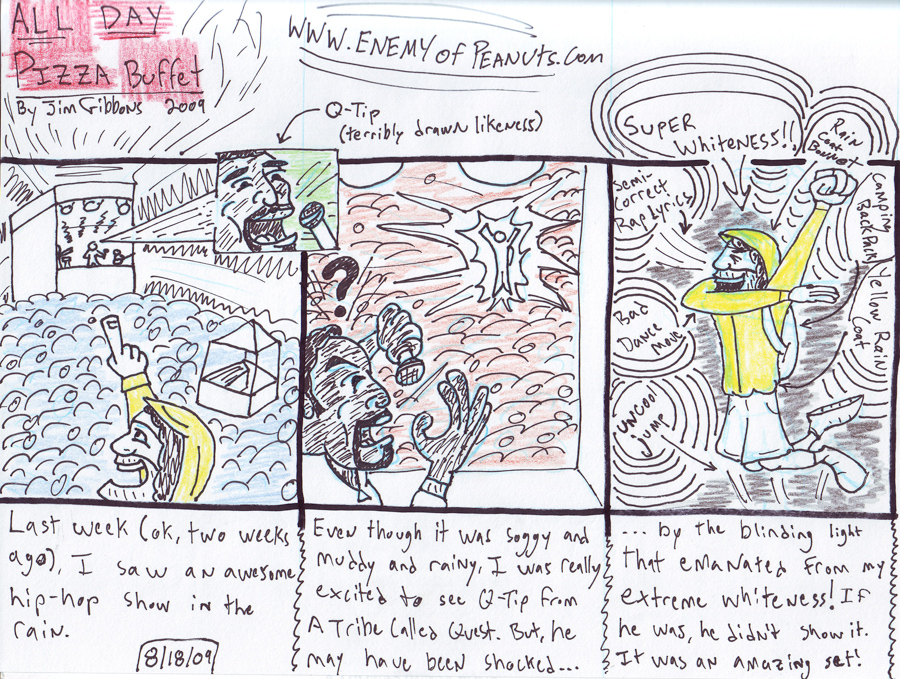 ALL DAY
PIZZA Buffet
By Jim Gibbons 2009
WWW.ENEMYofPEANUTS.com
Q-Tip
(terribly drawn likeness)
SUPER
Whiteness!!
Rain
Coat
Bonnet
Semi-
Correct
Rap Lyrics
camping
BackPack
Yellow Rain
Coat
Bad
Dance
move
UNCOOL
jump
?
Last week (ok, two weeks
ago), I saw an awesome
hip-hop show in the
rain.
8/18/09
Even though it was soggy and
muddy and rainy, I was really
excited to see Q-Tip from
A Tribe Called Quest. But, he
may have been shocked...
... by the blinding light
That emanated from my
extreme whiteness! If
he was, he didn't show it.
It was an amazing set!